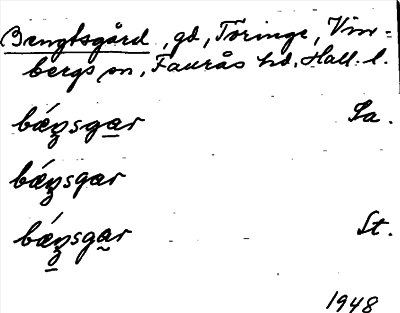 Bengtsgård, gd, Töringe, Vin=
bergs sn, Faurås hd, Hall. l.
bǽn̥sgar Sa.
bǽn̥sgar
bǽn̥sgar St.
1948